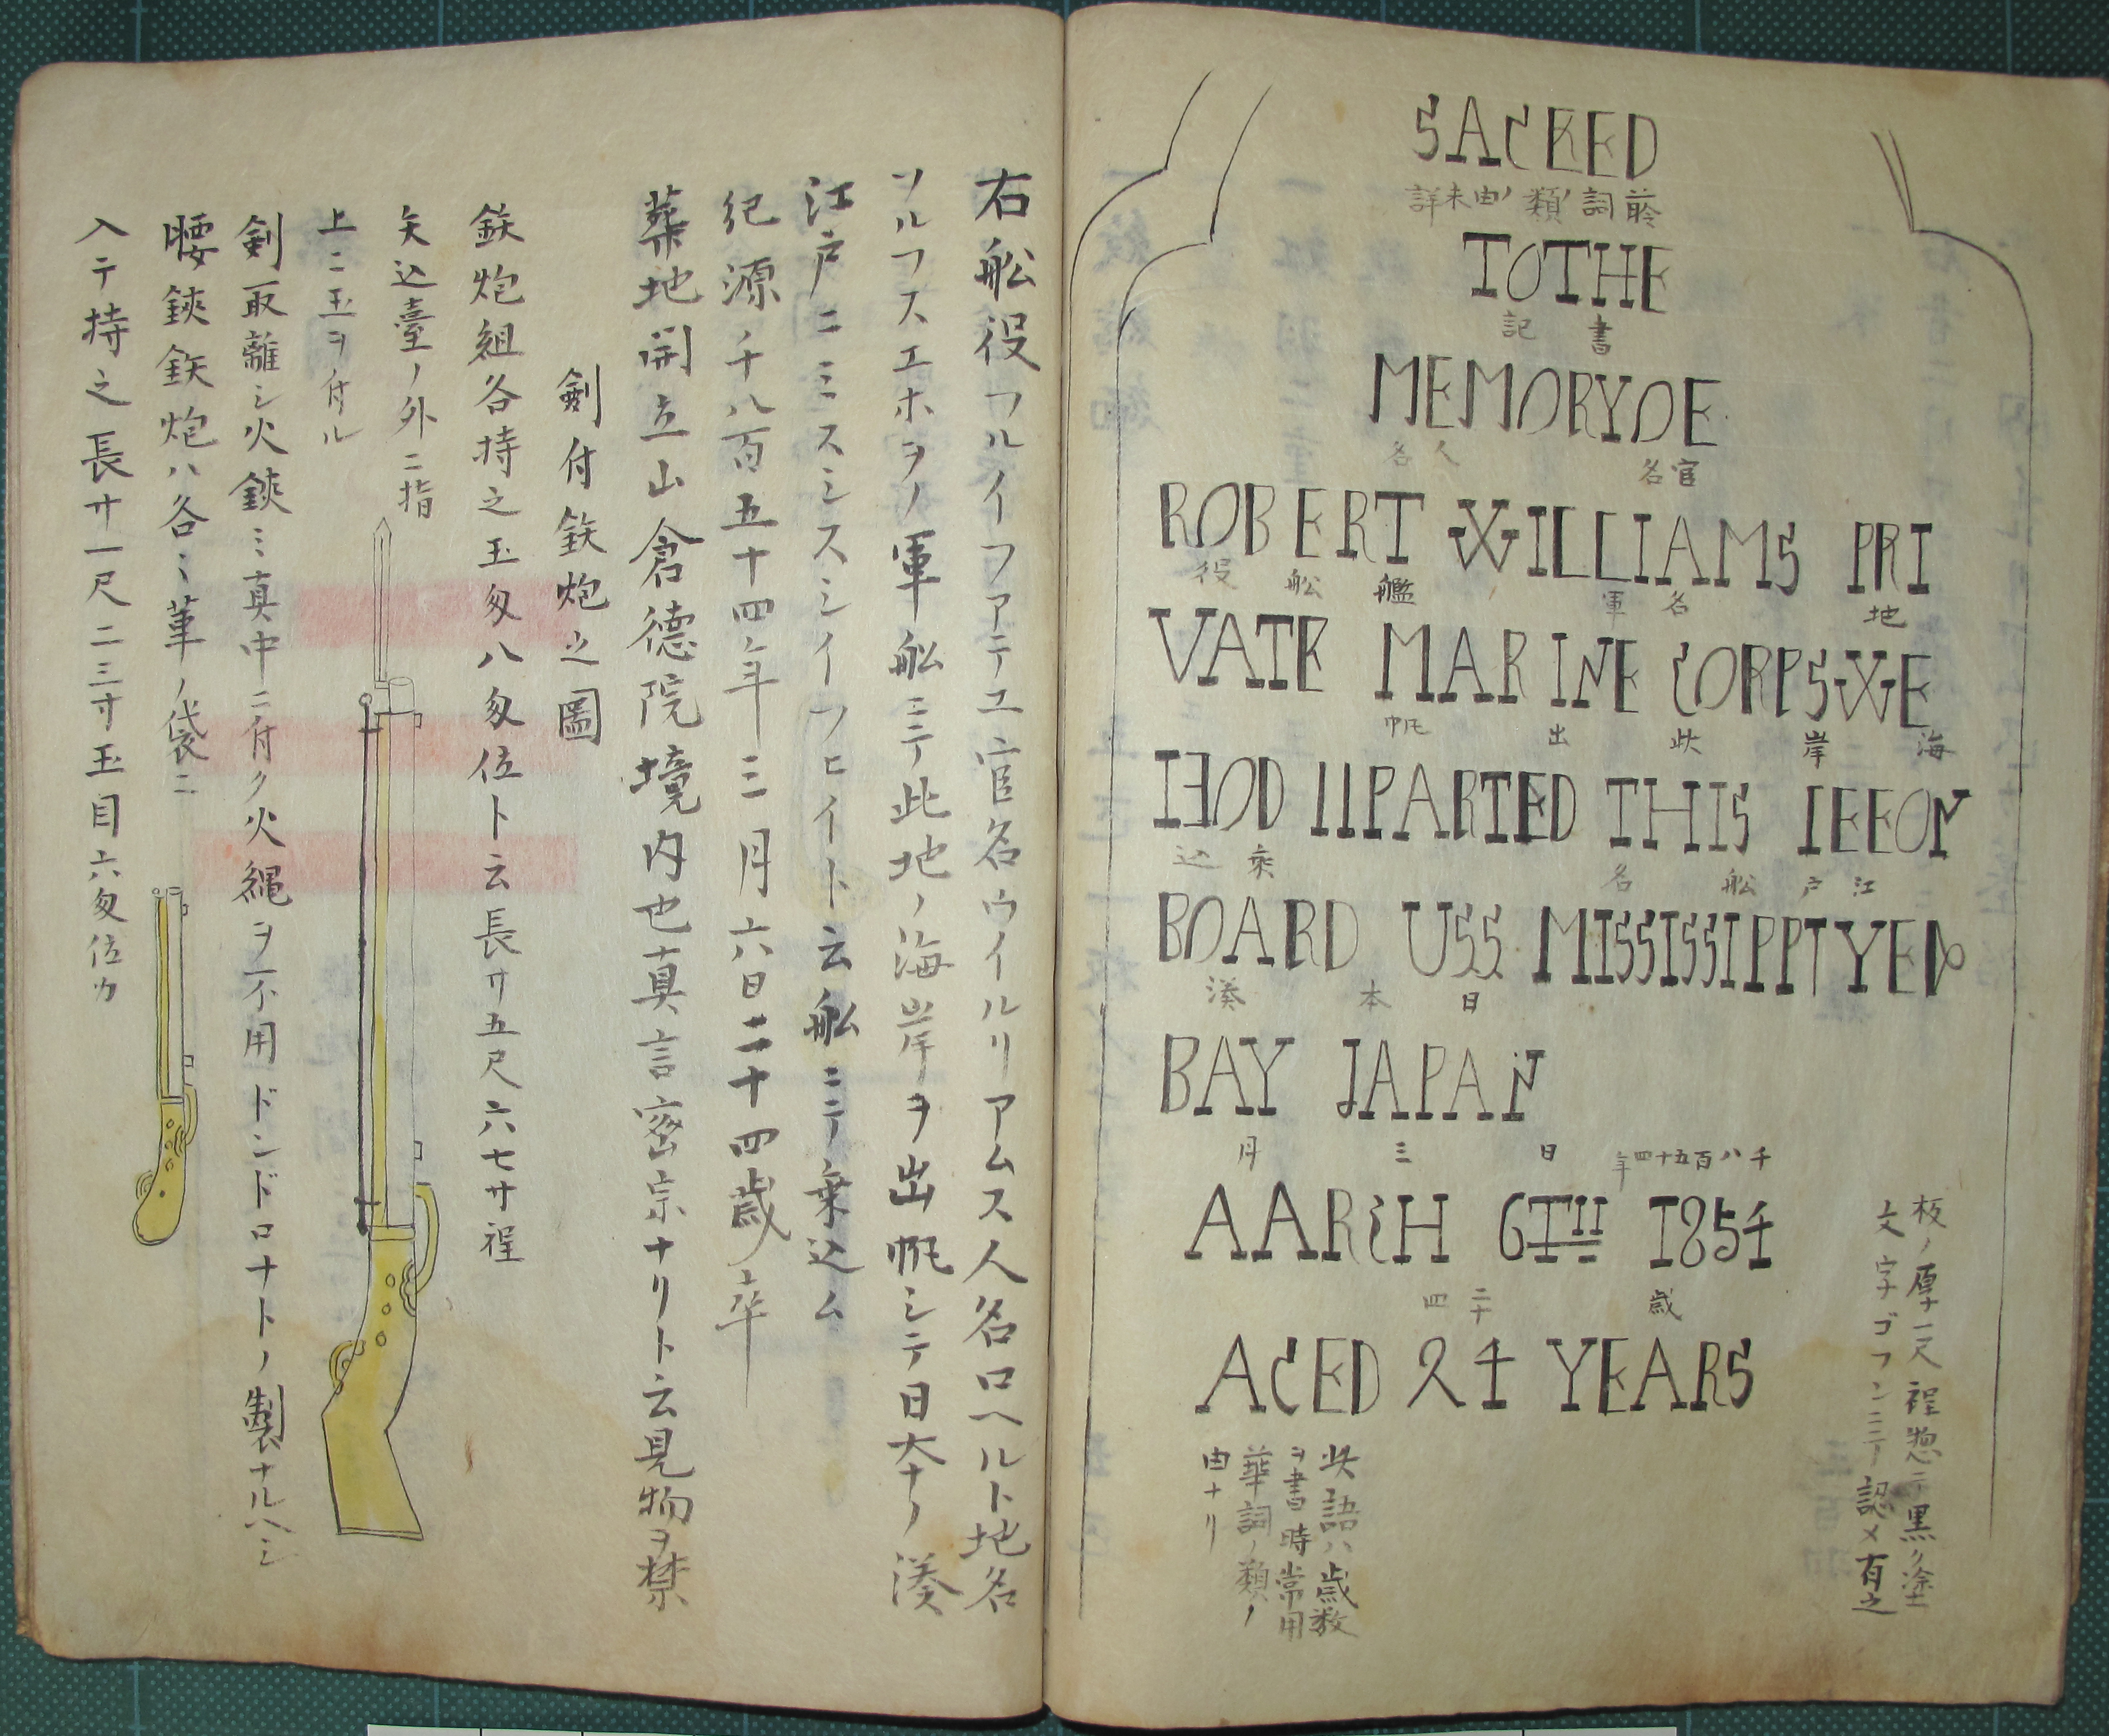 SACRED
詳未由ノ類ノ詞前
TOTHE
記 書
MEMORYOE
名人 名官
ROBERT WILLIAMS PRI
役 舩 艦 軍 名 地
VATE MARINE CORPS WE
帆 出 此 岸 海
IƎOD IIPARTED THIS IEEON
込 乗 名 舩 戸 江
BOARD USS MISSISSIPPI YED
湊 本 日
BAY JAPAN
月 三 日 年四十五百八千
AARCH 6TH 1854
四 二十 歳
ACED 24 YEARS
板ノ厚一尺程惣テ黒ク塗
文字ゴフンニテ認メ有之
此語ハ歳数
ヲ書時常用
華詞ノ類ノ
由ナリ
右舩役フルイフアテエ官名ウイルリアムス人名ロヘルト地名
ソルフスエホヲノ軍舩ニテ此地ノ海岸ヲ出帆シテ日本ノ湊
江戸ニミスシスシイフヒイト云舩ニテ乗込ム
紀源千八百五十四年三月六日二十四歳ノ卒
葬地開立山倉徳院境内也真言密宗ナリト云見物ヲ禁
劍付鉄炮之圖
鉄炮組各持之玉匁八匁位ト云長サ五尺六七寸程
矢込臺ノ外ニ指
上ニ玉ヲ付ル
剣取離シ火鋏ミ真中ニ付ク火縄ヲ不用ドンドロナトノ製ナルヘシ
腰鋏鉄炮ハ各々革ノ袋ニ
入テ持之長サ一尺二三寸玉目六匁位カ